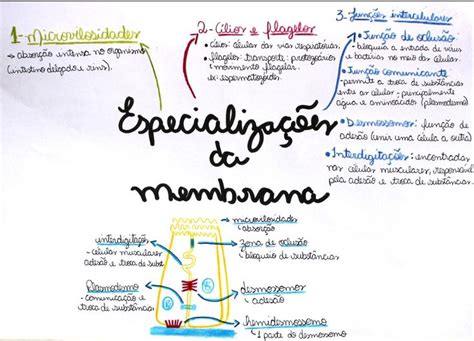 1- Microvilosidades
→ absorção intensa no organismo
(intestino delgado e rins).
2- Cílios e flagelos
• Cílios: células das vias respiratórias.
• flagelos: transporte: protozoários
→ movimento flagelar.
ex: espermatozoides.
3- Junções intercelulares
• Junção de oclusão:
→ bloqueia a entrada de vírus
e bactérias no meio das células.
• Junção comunicante:
-permite a troca de substâncias
entre as células - principalmente
água e aminoácidos (plasmodesmo)
• Desmossomos: função de
adesão (unir uma célula a outra)
• Interdigitações: encontradas
nas células musculares, responsável
pela adesão e troca de substâncias.
Especializações
da
membrana
→ microvilosidades
↳ absorção
interdigitações
- células musculares
adesão e troca de subst.
zona de oclusão
↳ bloqueio de substâncias
Plasmodesmo
- comunicação e
troca de substâncias
desmossomos
↳ adesão
hemidesmossomo
↳ 1 parte do desmossomo